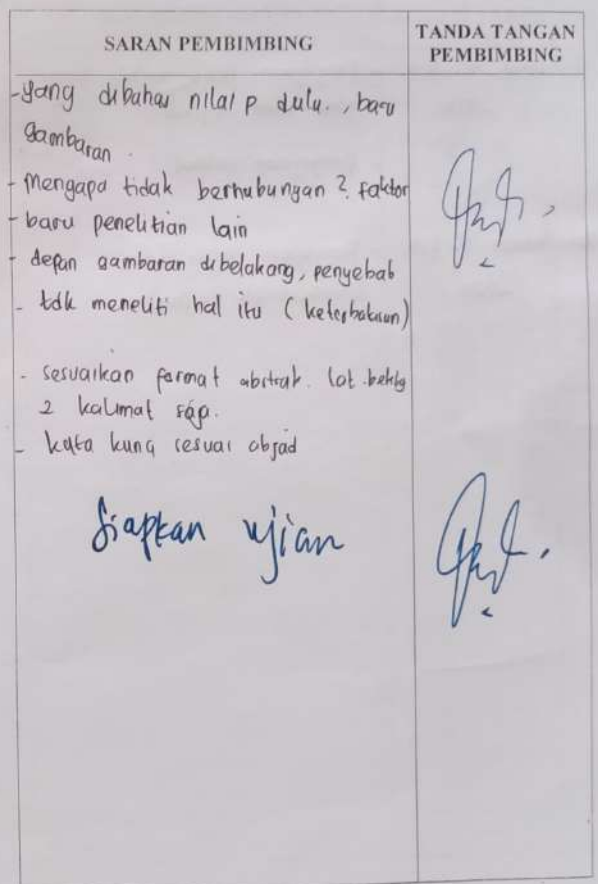 SARAN PEMBIMBING
TANDA TANGAN
PEMBIMBING
- yang dibahas nilai p dulu., baru
gambaran.
- Mengapa tidak berhubungan ? faktor
- baru penelitian lain
- depan gambaran dibelakang, penyebab
- tdk meneliti hal itu (keterbatasan)
- sesuaikan format abstrak. lat.beklg
2 kalimat saja.
- kata kunci sesuai abjad
Siapkan ujian